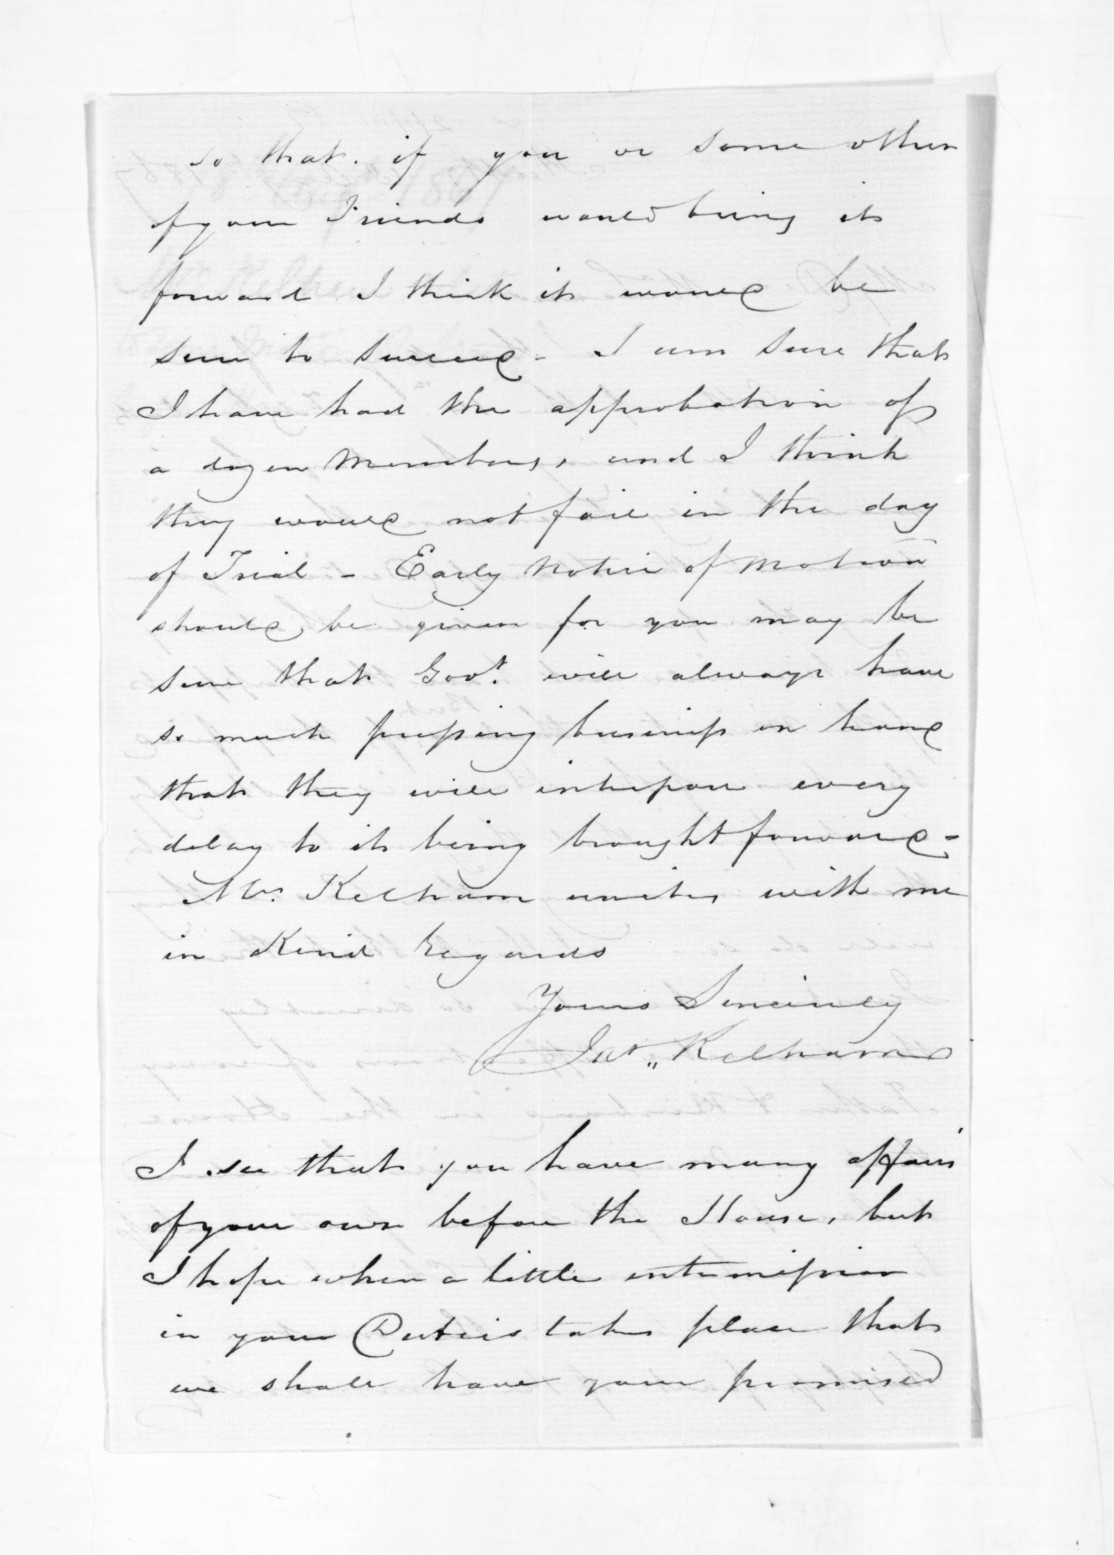 so that if you or some other
of your Friends would bring it
forward I think it would be
sure to succeed - I am sure that
I have had the approbation of
a dozen Members, and I think
they would not fail in the day
of Trial - Early notice of motion
should be given for you may be
sure that Govt. will always have
so much pressing business in hand
that they will interpose every
delay to its being brought forward -
Mrs. Kelham unites with me
in Kind regards
Yours Sincerely
Jas. Kelham
I see that you have many affairs
of your own before the House, but
I hope when a little intermission
in your Duties takes place that
we shall have your promised